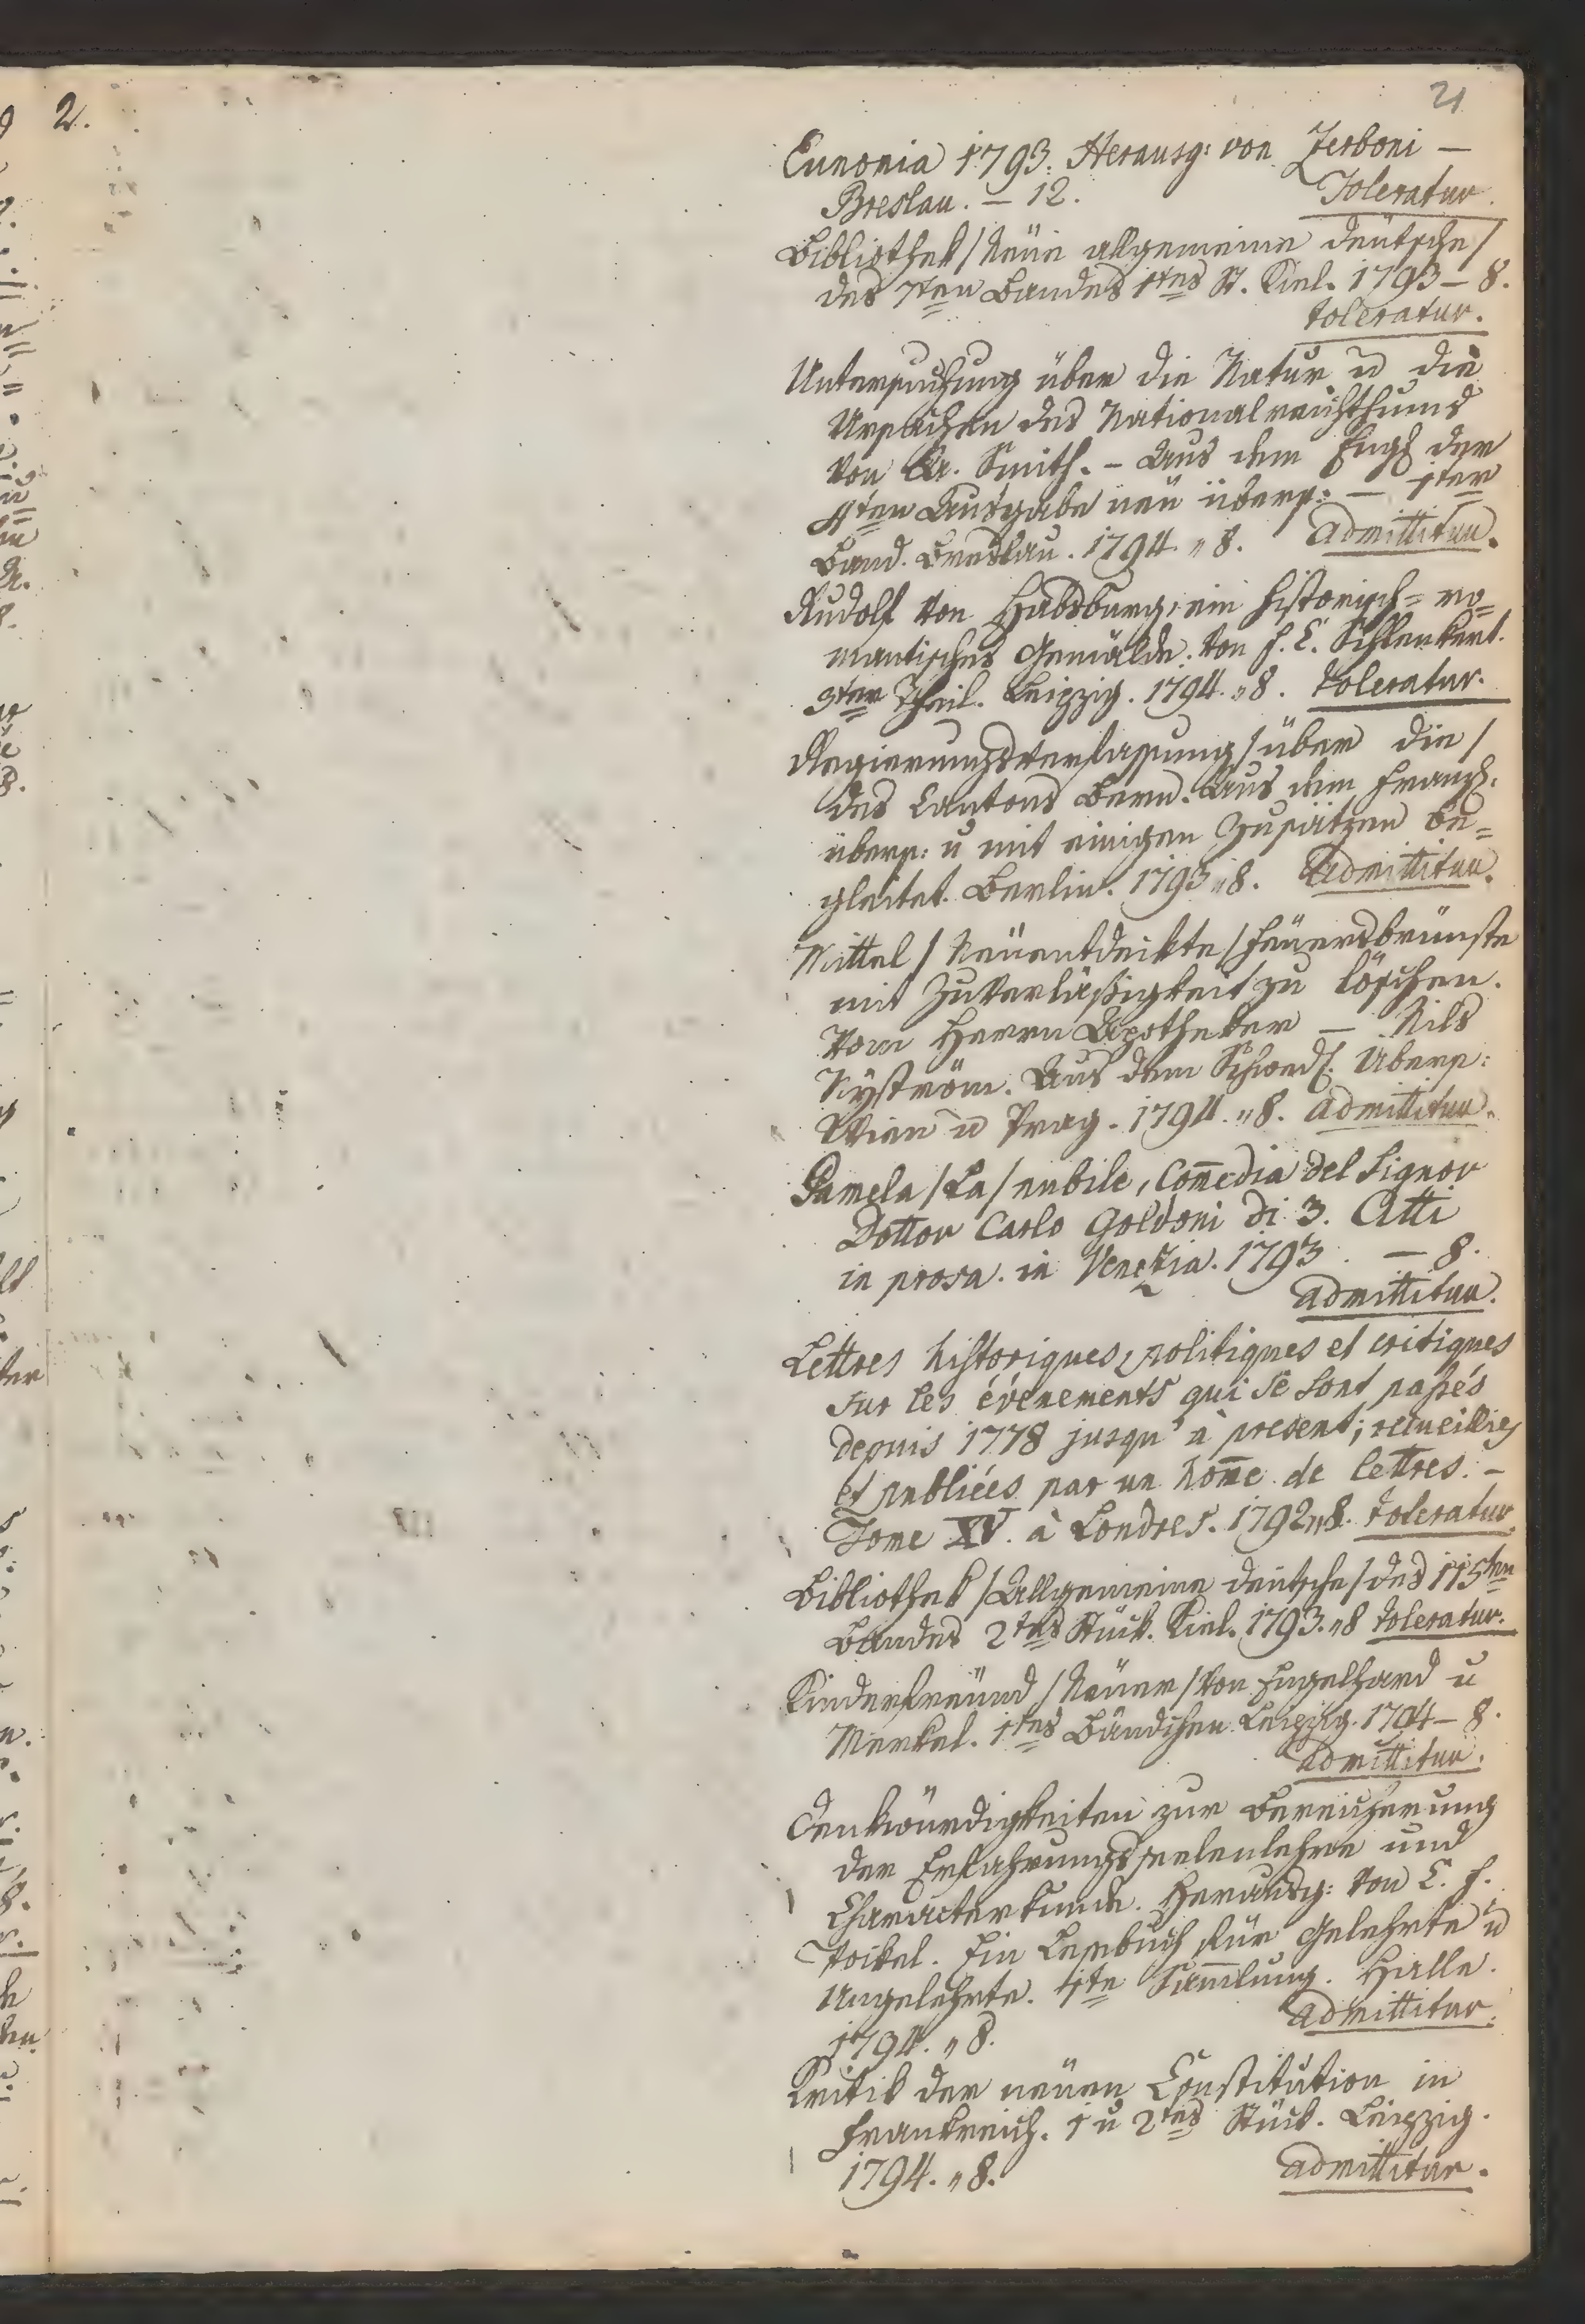 2.
21
Eunomia 1793. Herausg: von Zerboni —
Breslau. — 12. Toleratur.
Bibliothek /Neüe allgemeine deütsche/
des 7ten Bandes 1tes St. Kiel. 1793 — 8.
toleratur.
Untersuchung über die Natur u die
Ursachen des Nationalreichthums
von A. Smith. — Aus dem Engl der
4ten Ausgabe neü übers: — 1ter
Band. Breslau. 1794. „ 8. admittitur.
Rudolf von Habsburg, ein historisch = ro=
mantisches Gemälde. von F. C. Schlenkert.
3ter Theil. Leipzig. 1794. „ 8. toleratur.
Regierungsverfassung /über die/
des Cantons Bern. Aus dem Franz:
übers: u mit einigen Zusätzen be=
gleitet. Berlin. 1793 „ 8. Admittitur.
Mittel /Neüentdeckte/ Feüersbrünste
mit Zuverläßigkeit zu löschen.
Vom Herrn Apotheker — Nils
Nyström. Aus dem Schwed. Übers:
Wien u Prag. 1794. „ 8. admittitur.
Pamela /La/ nubile, Com̄edia del Signor
Dottor Carlo Goldoni di 3. Atti
in prosa. in Venezia. 1793. — 8.
admittitur.
Lettres historiques, politiques et critiques
sur les événements qui se sont passés
depuis 1778 jusqu' à present; recueillies
et publiées par un hom̄e de lettres. —
Tome XV. à Londres. 1792 „ 8. toleratur.
Bibliothek /Allgemeine deütsche/ des 115ten
Bandes 2tes Stück. Kiel. 1793. „ 8 toleratur.
Kinderfreünd /Neüer/ von Engelhard u
Merkel. 1tes Bändchen. Leipzig. 1794 — 8.
admittitur.
Denkwürdigkeiten zur Bereicherung
der Erfahrungsseelenlehre und
Characterkunde. Herausg: von C. F.
Pockel. Ein Lesebuch für Gelehrte u
Ungelehrte. 1te Sam̄lung. Halle.
1794. „ 8. admittitur.
Kritik der neüen Constitution in
Frankreich. 1 u 2tes Stück. Leipzig.
1794. „ 8. admittitur.